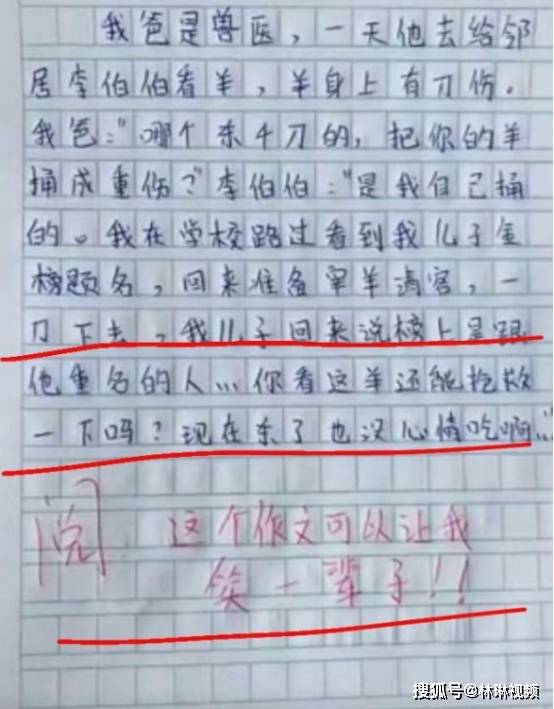 我爸是兽医，一天他去给邻
居李伯伯看羊，羊身上有刀伤。
我爸："哪个杀千刀的，把你的羊
捅成重伤？"李伯伯："是我自己捅
的。我在学校路过看到我儿子金
榜题名，回来准备宰羊请客，一
刀下去，我儿子回来说榜上是跟
他重名的人…你看这羊还能抢救
一下吗？现在杀了也没心情吃啊…"
阅
这个作文可以让我
笑一辈子！！
搜狐号@林琳视频